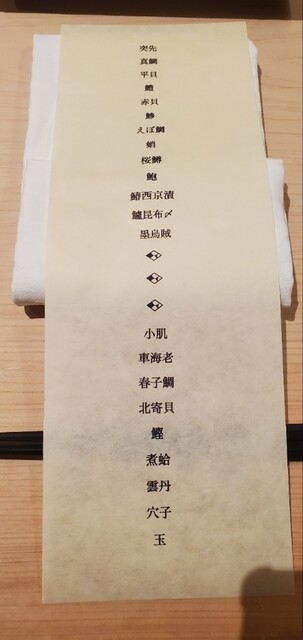 突先
真鯛
平貝
鱧
赤貝
鯵
えぼ鯛
蛸
桜鱒
鮑
鰆西京漬
鱸昆布〆
墨烏賊
小肌
車海老
春子鯛
北寄貝
鰹
煮蛤
雲丹
穴子
玉